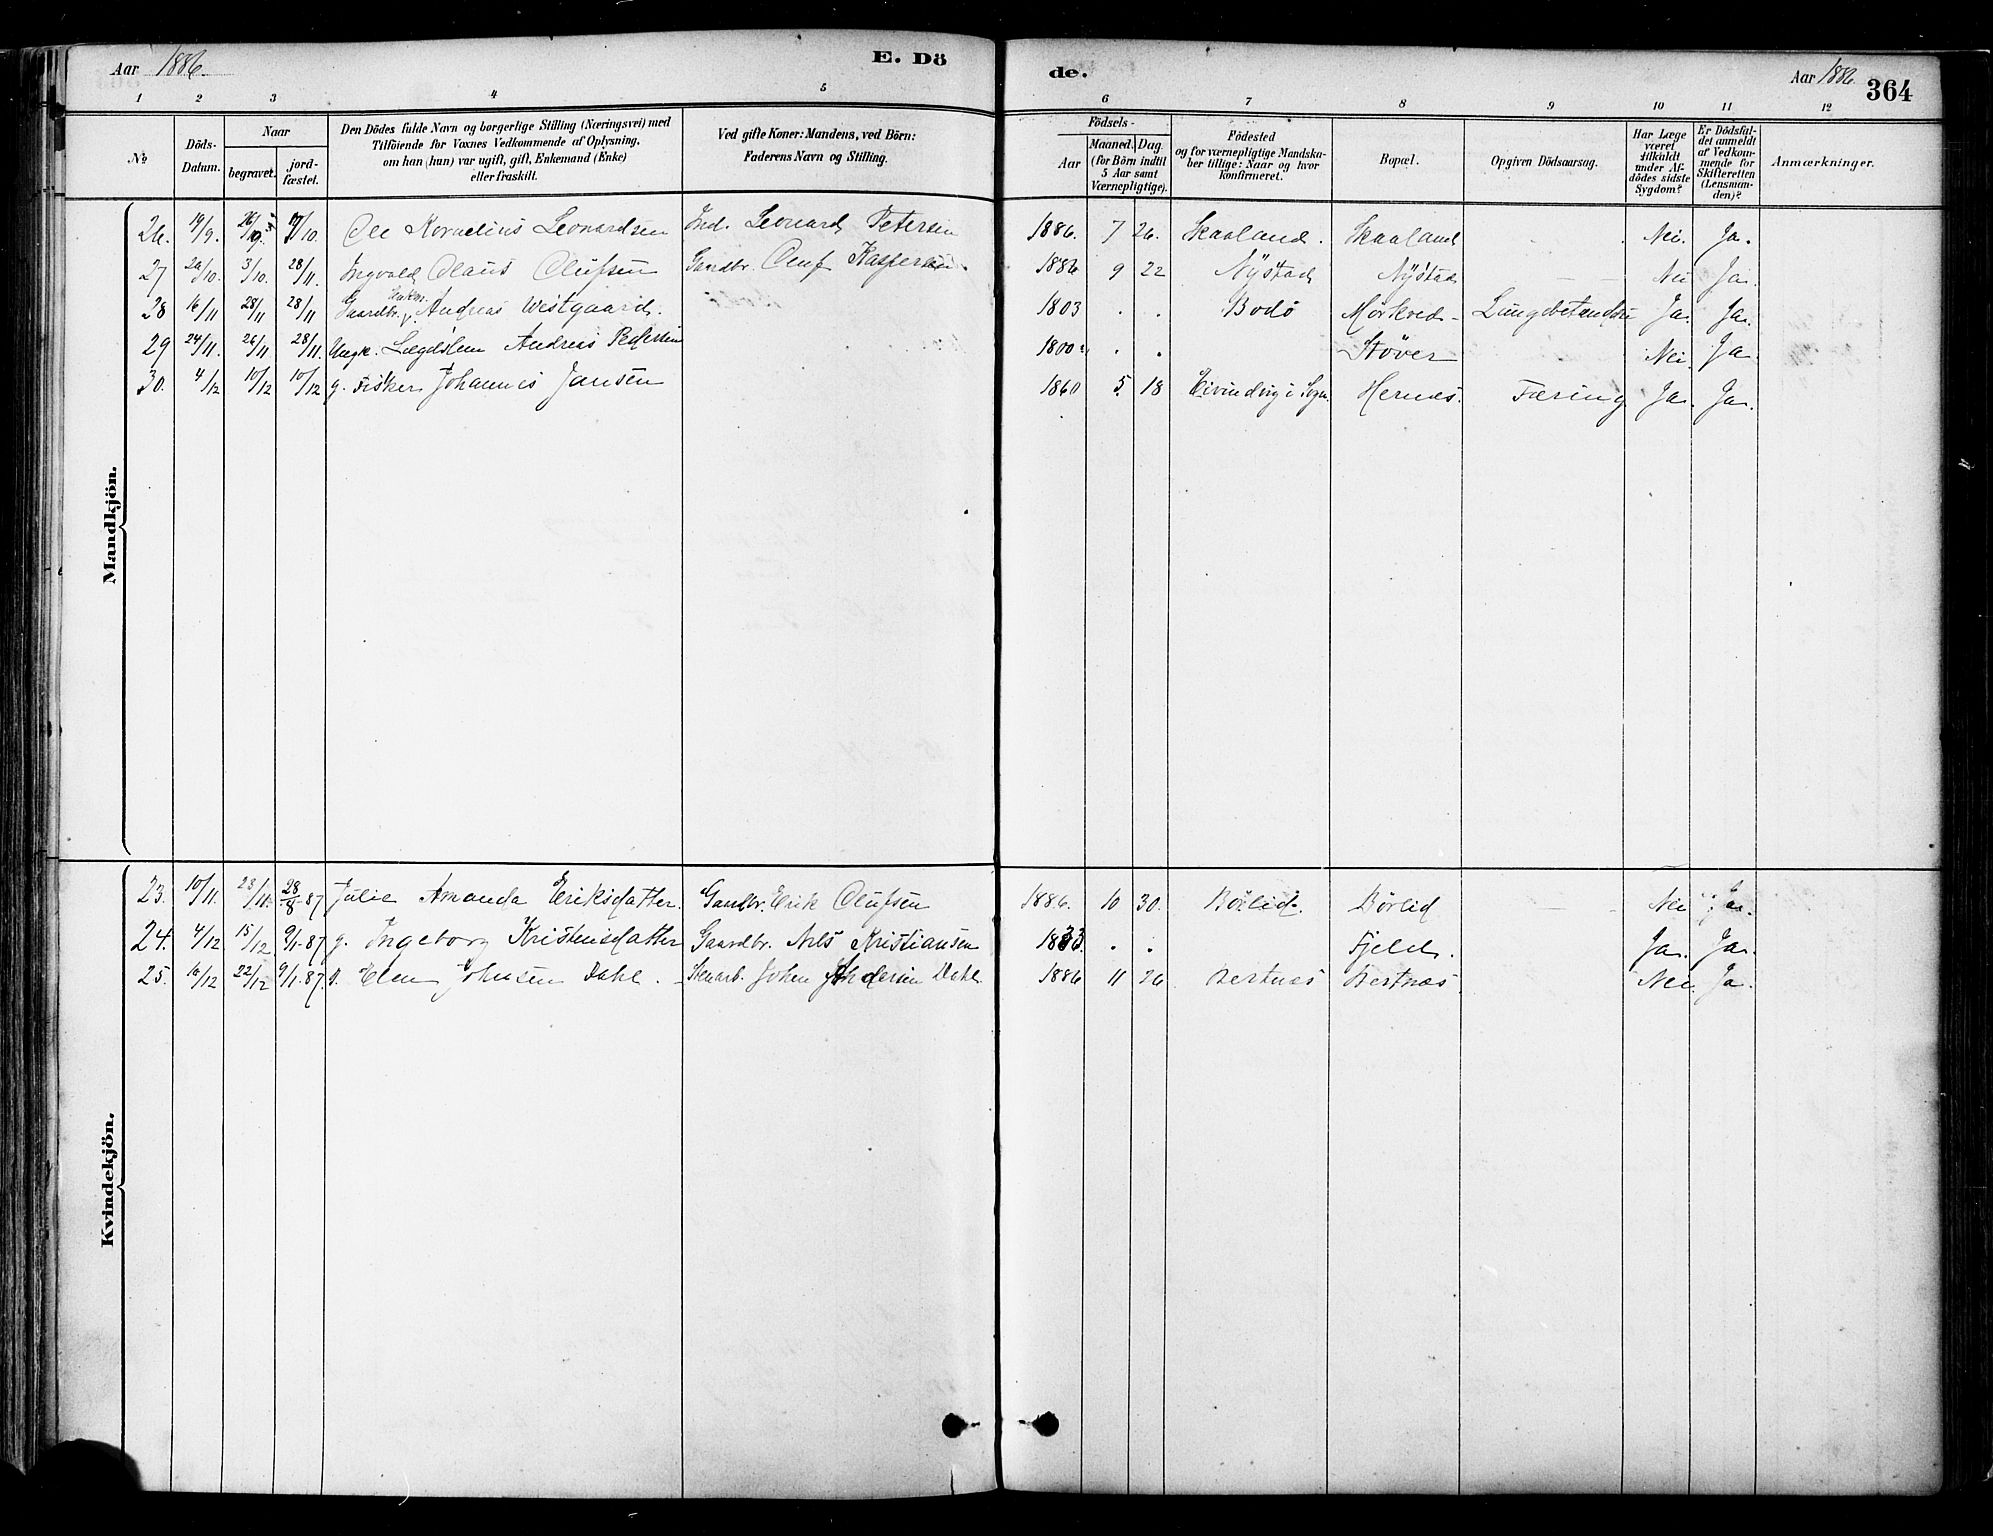 Aar 1886.
E. Dö
de.
Aar 1886
364
1 2 3 4 5 6 7 8 9 10 11 12
No
Döds-Datum.
Naar
begravet.
jord-fæstet.
Den Dödes fulde Navn og borgerlige Stilling (Næringsvei) med
Tilföiende for Voxnes Vedkommende af Oplysning,
om han (hun) var ugift, gift, Enkemand (Enke)
eller fraskilt.
Ved gifte Koner: Mandens, ved Börn:
Faderens Navn og Stilling.
Födsels-
Aar
Maaned. Dag
(for Börn indtil
5 Aar samt
Værnepligtige).
Födested
og for værnepligtige Mandska-
ber tillige: Naar og hvor
konfirmeret.
Bopæl.
Opgiven Dödsaarsag.
Har Læge
været
tilkaldt
under Af-
dödes sidste
Sygdom?
Er Dödsfal-
det anmeldt
af Vedkom-
mende for
Skifteretten
(Lensman-
den)?
Anmærkninger.
Mandkjön.
26. 14/9. 17/10. Ole Kornelius Leonardsen Ind. Leonard Petersen 1886. 7 26. Skaaland. Skaaland Nei. Ja.
27 3/10. 28/11. Ingvald Claus Olufsen Gaardbr. Oluf Kaspersen 1886 9 22 Nystad Nystad Nei Ja.
28 16/11 28/11 28/11 Gaardbr. Enkm. Andreas Westgaard. 1803 . . Bodö Mörkved Lungebetændelse Ja. Ja.
29 24/11. 26/11 28/11. Ungk. Lægdslem Andreas Pedersen 1800 . . Stöver Nei. Ja
30. 4/12 10/12 10/12 g. Fisker Johannes Jansen 1860 5. 18 Eivindvig i Sogn. Hernæs. Tæring Ja. Ja.
Kvindekjön.
23. 10/11. 23/11. 28/8-87 Julie Amanda Eriksdatter. Gaardbr. Erik Olufsen 1886. 10 30. Börlid. Börlid Nei Ja.
24. 4/12 15/12 9/1-87 g. Ingeborg Kristensdatter Gaardbr. Nils Kristiansen 1833. . . Fjeld. Ja. Ja.
25. 16/12 22/12 9/1-87. Elen Johnsen Dahl. Stenarb. Johen Dahl. 1886 11 26 Bertnæs Bertnæs. Nei. Ja.